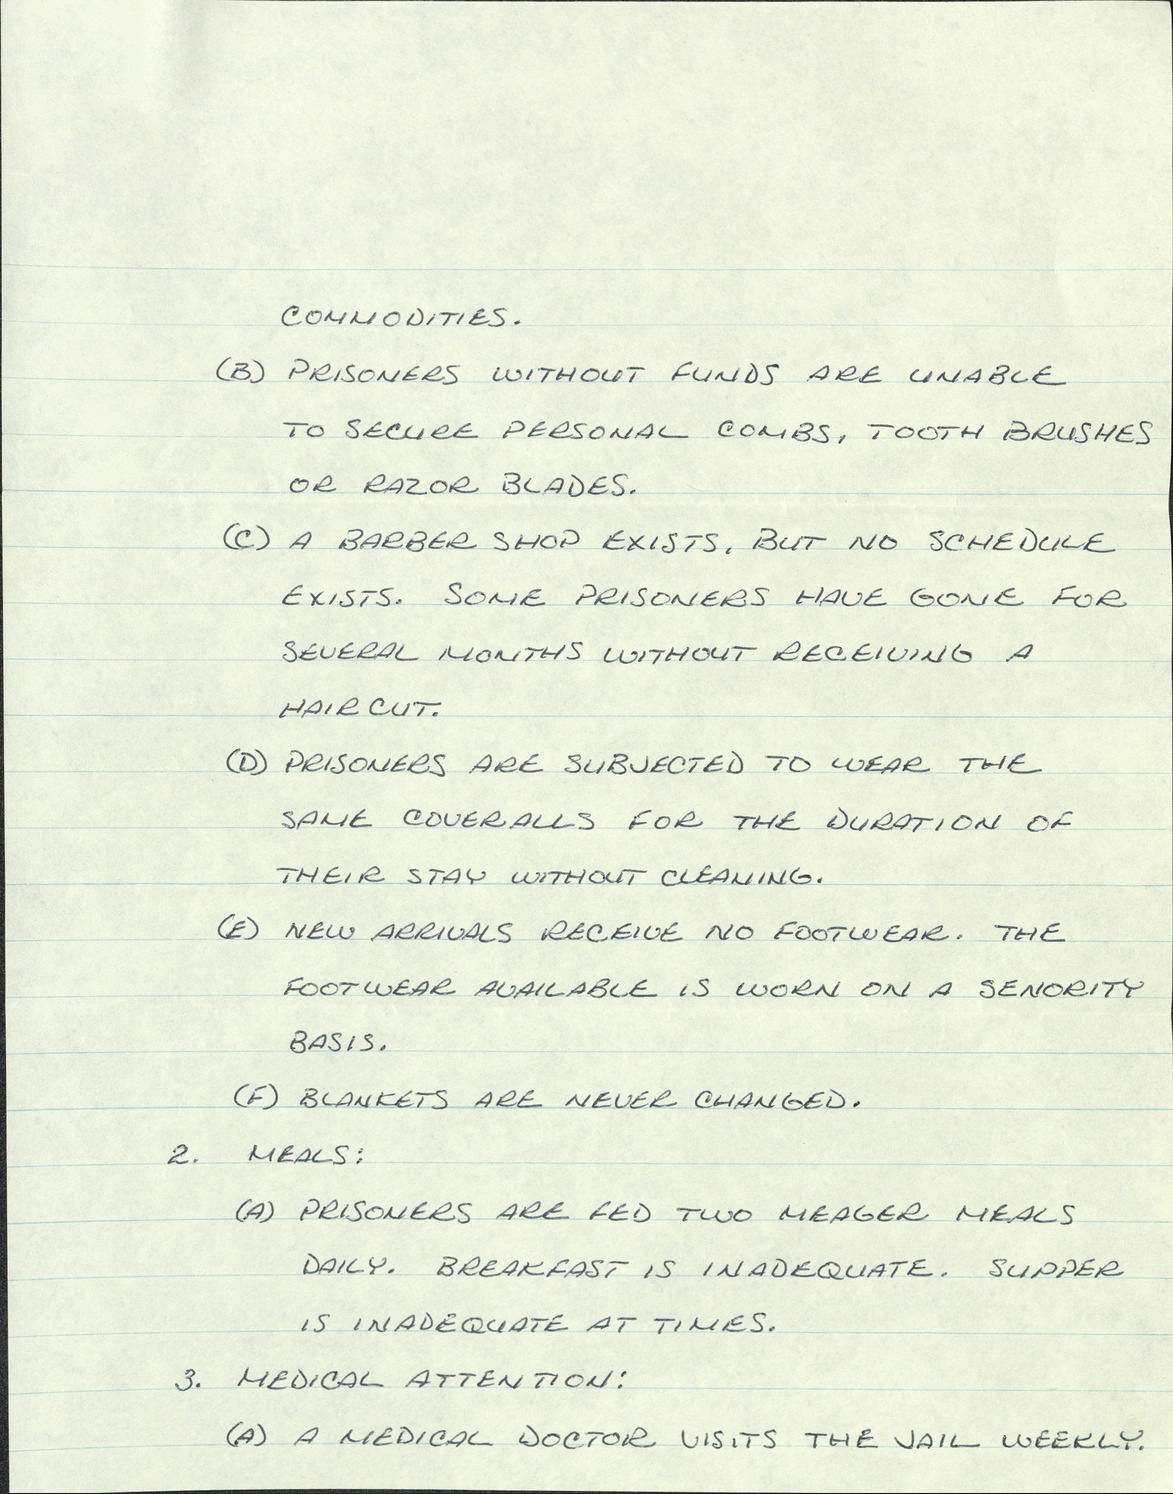 COMMODITIES.
(B) PRISONERS WITHOUT FUNDS ARE UNABLE
TO SECURE PERSONAL COMBS, TOOTH BRUSHES
OR RAZOR BLADES.
(C) A BARBER SHOP EXISTS, BUT NO SCHEDULE
EXISTS. SOME PRISONERS HAVE GONE FOR
SEVERAL MONTHS WITHOUT RECEIVING A
HAIR CUT.
(D) PRISONERS ARE SUBJECTED TO WEAR THE
SAME COVERALLS FOR THE DURATION OF
THEIR STAY WITHOUT CLEANING.
(E) NEW ARRIVALS RECEIVE NO FOOTWEAR. THE
FOOTWEAR AVAILABLE IS WORN ON A SENORITY
BASIS.
(F) BLANKETS ARE NEVER CHANGED.
2. MEALS:
(A) PRISONERS ARE FED TWO MEAGER MEALS
DAILY. BREAKFAST IS INADEQUATE. SUPPER
IS INADEQUATE AT TIMES.
3. MEDICAL ATTENTION:
(A) A MEDICAL DOCTOR VISITS THE JAIL WEEKLY.